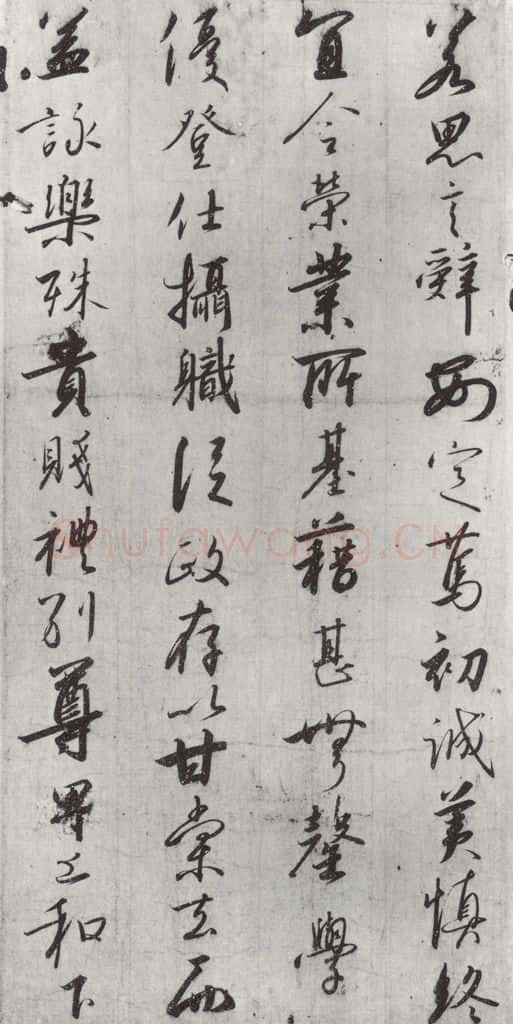 若思言辭安定篤初誠美慎終
宜令榮業所基藉甚無罄學
優登仕攝職從政存以甘棠去而
益詠樂殊貴賤禮別尊卑上和下
Shufawang.CN